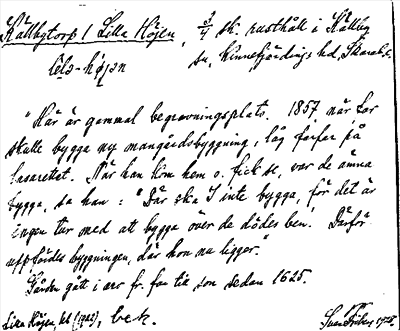 Källbytorp 1 Lilla Höjen, 3/4 sk. rusthåll i Källby
lẹla-họjan sn, Kinnefjärdings hd, Skarab. l.
"Här är gammal begravningsplats. 1857, när far
skulle bygga ny mangårdsbyggning, låg farfar på
lasarettet. När han kom hem o. fick se, var de ämna
bygga, sa han: "Där ska I inte bygga, för det är
ingen tur med att bygga över de dödes ben." Därför
uppfördes byggningen, där hon nu ligger."
Gården gått i arv fr. far till son sedan 1625.
Lilla Höjen, kl (1902), bek.
Sven